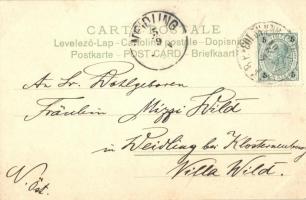 CARTE POSTALE
Levelező-Lap - Cartolina postale - Dopisnice
Postkarte - POST-CARD - Briefkaart
WEIDLING
5
9
An Sr. Wohlgeboren
Fräulein Mizzi Wild
in Weidling bei Klosterneuburg
Villa Wild.
N. Öst.